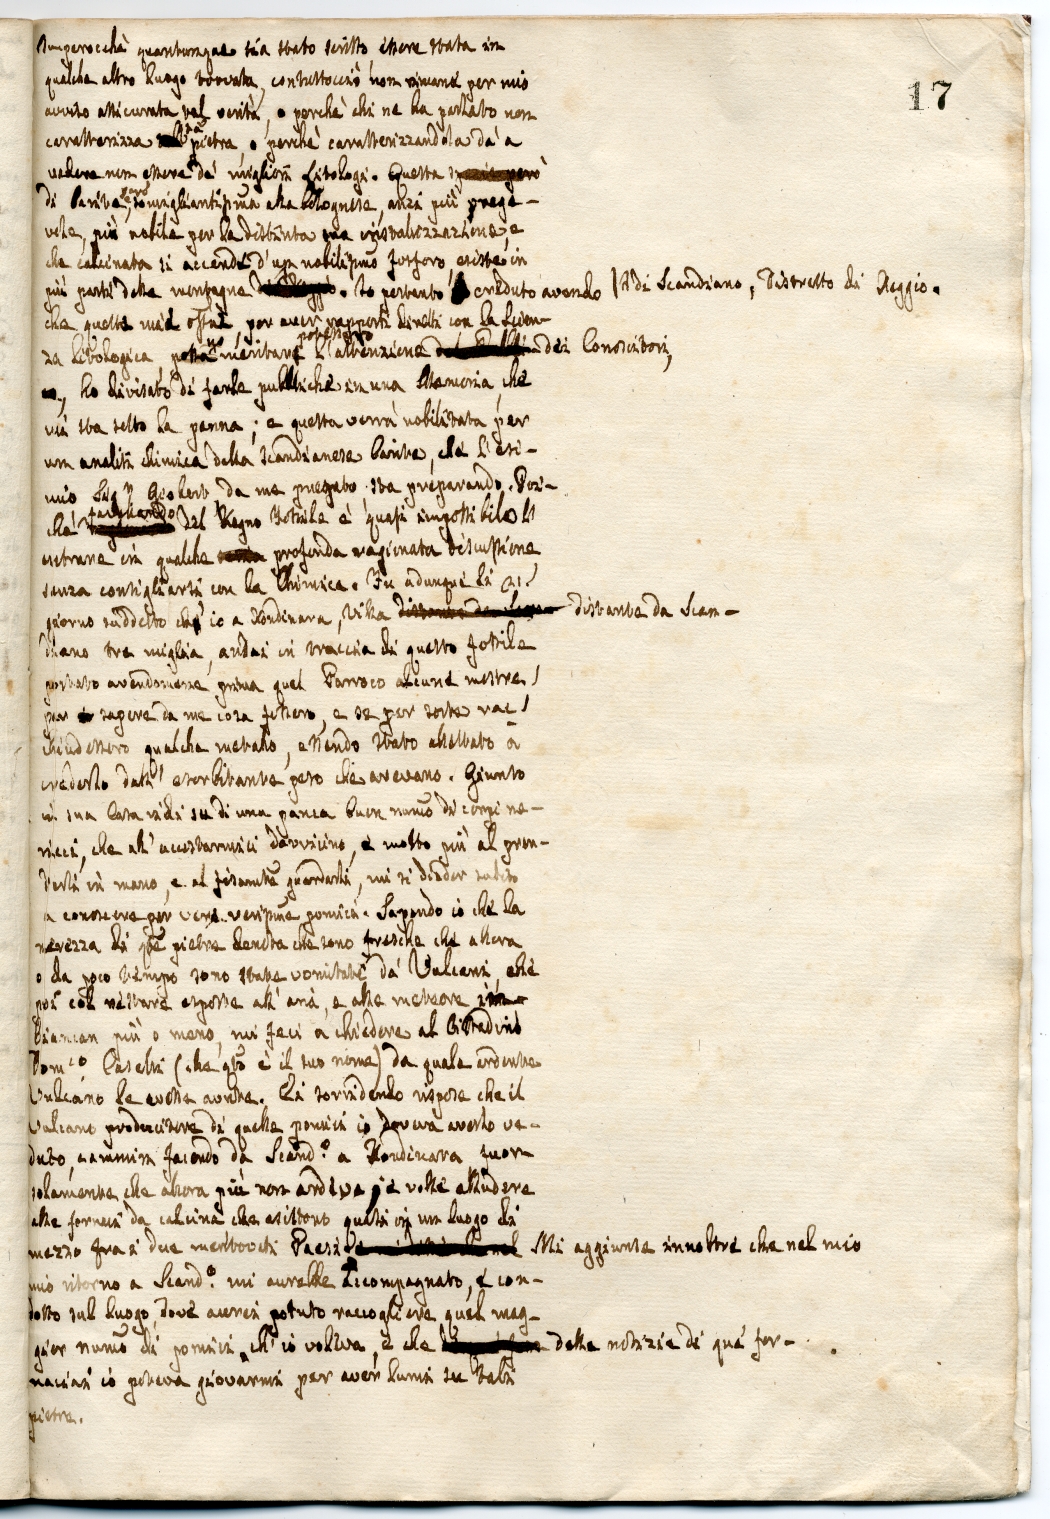 17
Imperocchè quantunque sia stato scritto essere stata in
qualche altro luogo trovata, contuttociò non rimane per mio
avviso assicurata tal verità, o perchè chi ne ha parlato non
caratterizza tal pietra, o perchè caratterizzandola dà a
vedere non essere de' migliori Litologi. Questa
di Barite però, somigliantissima alla bolognese, anzi più prege-
vole, più nobile per la distinta sua cristallizzazione, e
che calcinata si accende d'un nobilissimo fosforo, esiste in
più parti delle montagne di Scandiano, Distretto di Reggio.
Io pertanto creduto avendo
che queste mie osserv., per aver rapporti diretti con la Scien-
za litologica, potessero meritare l'attenzione dei Conoscitori,
ho divisato di farle pubbliche in una Memoria, che
mi sta sotto la penna; e questa verrà nobilitata per
un analisi chimica della scandianese Barite, che l'esi-
mio Sig.r Gioberti, da me pregato, sta preparando. Poi-
chè favellando del Regno Fossile è quasi impossibile l'
entrare in qualche profonda ragionata discussione,
senza consigliarsi con la Chimica. Fu adunque li 21
giorno suddetto che io a Rondinara, Villa distante da Scan-
diano tre miglia, andai in traccia di questo fossile
portato avendomene prima quel Parroco alcune mostre,
per sapere da me cosa fossero, e se per sorte rac-
chiudessero qualche metallo, essendo stato allettato a
crederlo dall' esorbitante peso che avevano. Giunto
in sua Casa vidi su di una panca buon num.o di corpi ne-
ricci, che all' accostarmici davvicino, e molto più al pren-
derli in mano, e al fissamte guardarli, mi si dieder subito
a conoscere per vere verissime pomici. Sapendo io che la
nerezza di tte pietre denota che sono fresche che allora
o da poco tempo sono state vomitate da' Vulcani, e che
poi col restare esposte all' aria, e alle meteore
biancan più o meno, mi feci a chiedere al Cittadino
Dom.co Caselli (che qto è il suo nome) da quale ardente
Vulcano le avesse avute. Ei sorridendo rispose che il
Vulcano produttore di quelle pomici io doveva averlo ve-
duto, cammin facendo da Scand.o a Rondinara fuor-
solamente che allora più non ardeva, e volle alludere
alle fornaci da calcina che esistono quasi in un luogo di
mezzo fra i due mentovati Paesi. Mi aggiunse innoltre che nel mio
mio ritorno a Scand.o mi avrebbe accompagnato, e con-
dotto sul luogo, dove avrei potuto raccogliere quel mag-
gior num.o di pomici, ch' io voleva, e che delle notizie di que' for-
naciai io poteva giovarmi per aver lumi su tali
pietre.